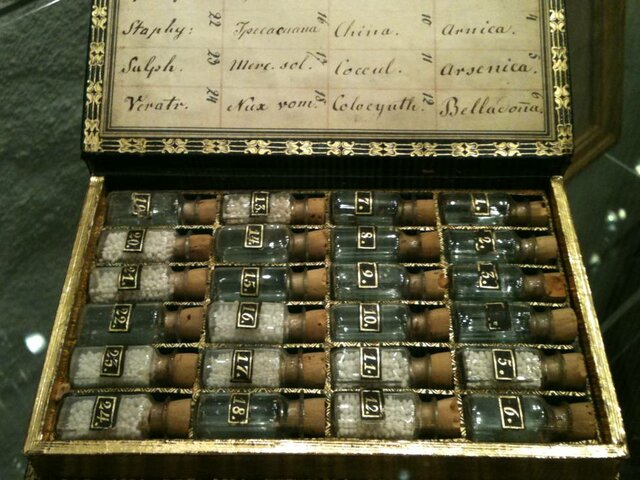 Staphy: 22 Ipecacuana 16 China. 10 Arnica. 4
Sulph. 23 Merc. sol. 17 Coccul. 11 Arsenica. 5
Veratr. 24 Nux vom. 18 Colocynth. 12 Belladoña. 6
19. 13. 7. 1.
20. 14. 8. 2.
21. 15. 9. 3.
22. 16. 10.
23. 17. 11. 5.
24. 18. 12 6.